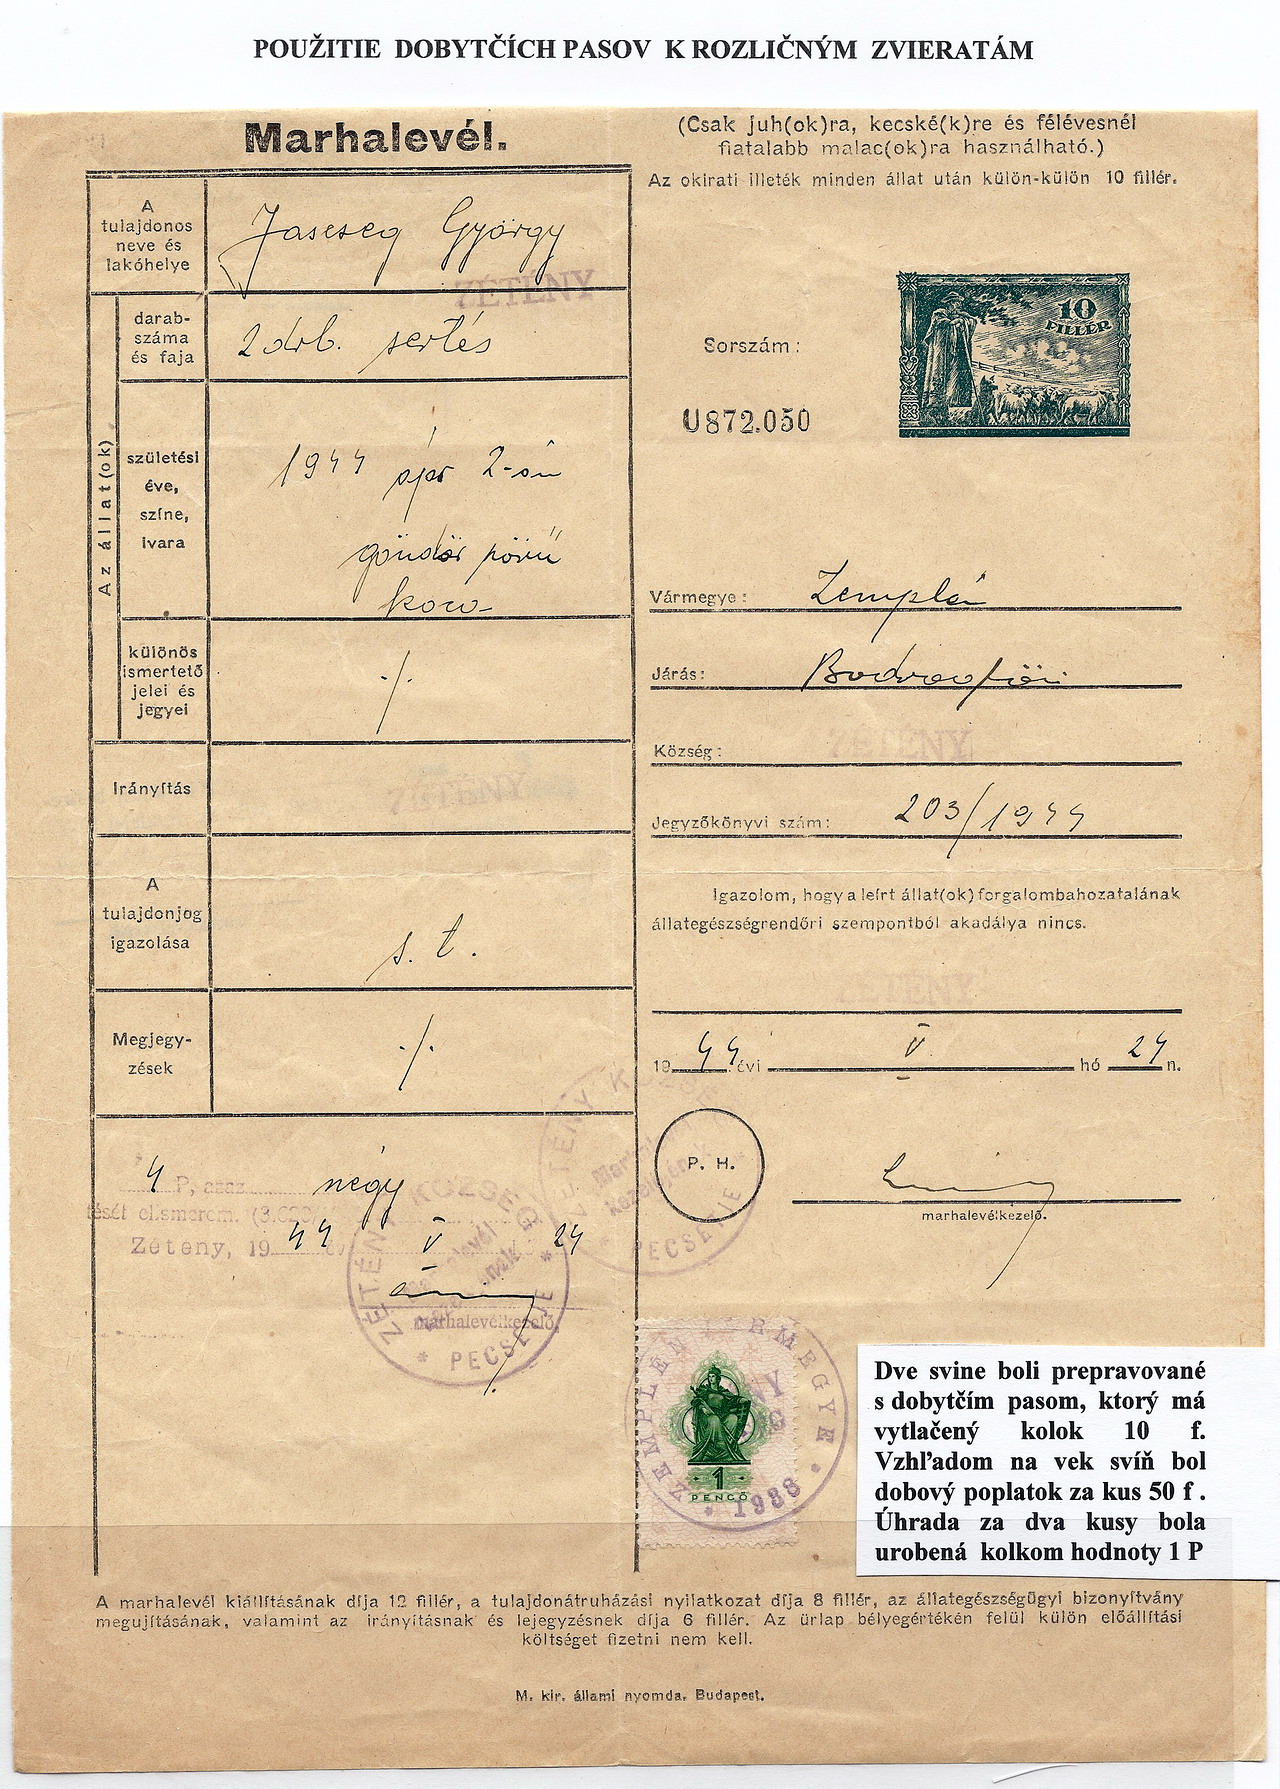 POUŽITIE DOBYTČÍCH PASOV K ROZLIČNÝM ZVIERATÁM
Marhalevél.
(Csak juh(ok)ra, kecské(k)re és félévesnél
fiatalabb malac(ok)ra használható.)
Az okirati illeték minden állat után külön-külön 10 fillér.
A
tulajdonos
neve és
lakóhelye
György
ZÉTÉNY
Az állat(ok)
darab-
száma
és faja
2 drb. sertés
10
FILLÉR
Sorszám:
U872.050
születési
éve,
színe,
ivara
1944 ápr 2-án
göndör
koca
Vármegye: Zemplén
különös
ismertető
jelei és
jegyei
./.
Járás:
Község: ZÉTÉNY
Irányítás
ZÉTÉNY
Jegyzőkönyvi szám: 203/1944
A
tulajdonjog
igazolása
s. t.
Igazolom, hogy a leírt állat(ok) forgalombahozatalának
állategészségrendőri szempontból akadálya nincs.
ZÉTÉNY
Megjegy-
zések
./.
1944. évi V hó 24 n.
P. H.
marhalevélkezelő.
4 P, azaz négy
tését elismerem.
Zétény, 1944 év V 24
marhalevélkezelő.
ZÉTÉNY KÖZSÉG
PECSÉTJE
ZÉTÉNY KÖZSÉG
PECSÉTJE
ZEMPLÉN VÁRMEGYE
1938
1
PENGŐ
Dve svine boli prepravované
s dobytčím pasom, ktorý má
vytlačený kolok 10 f.
Vzhľadom na vek svíň bol
dobový poplatok za kus 50 f .
Úhrada za dva kusy bola
urobená kolkom hodnoty 1 P
A marhalevél kiállításának díja 12 fillér, a tulajdonátruházási nyilatkozat díja 8 fillér, az állategészségügyi bizonyítvány
megujításának, valamint az irányításnak és lejegyzésnek díja 6 fillér. Az ürlap bélyegértékén felül külön előállítási
költséget fizetni nem kell.
M. kir. állami nyomda. Budapest.